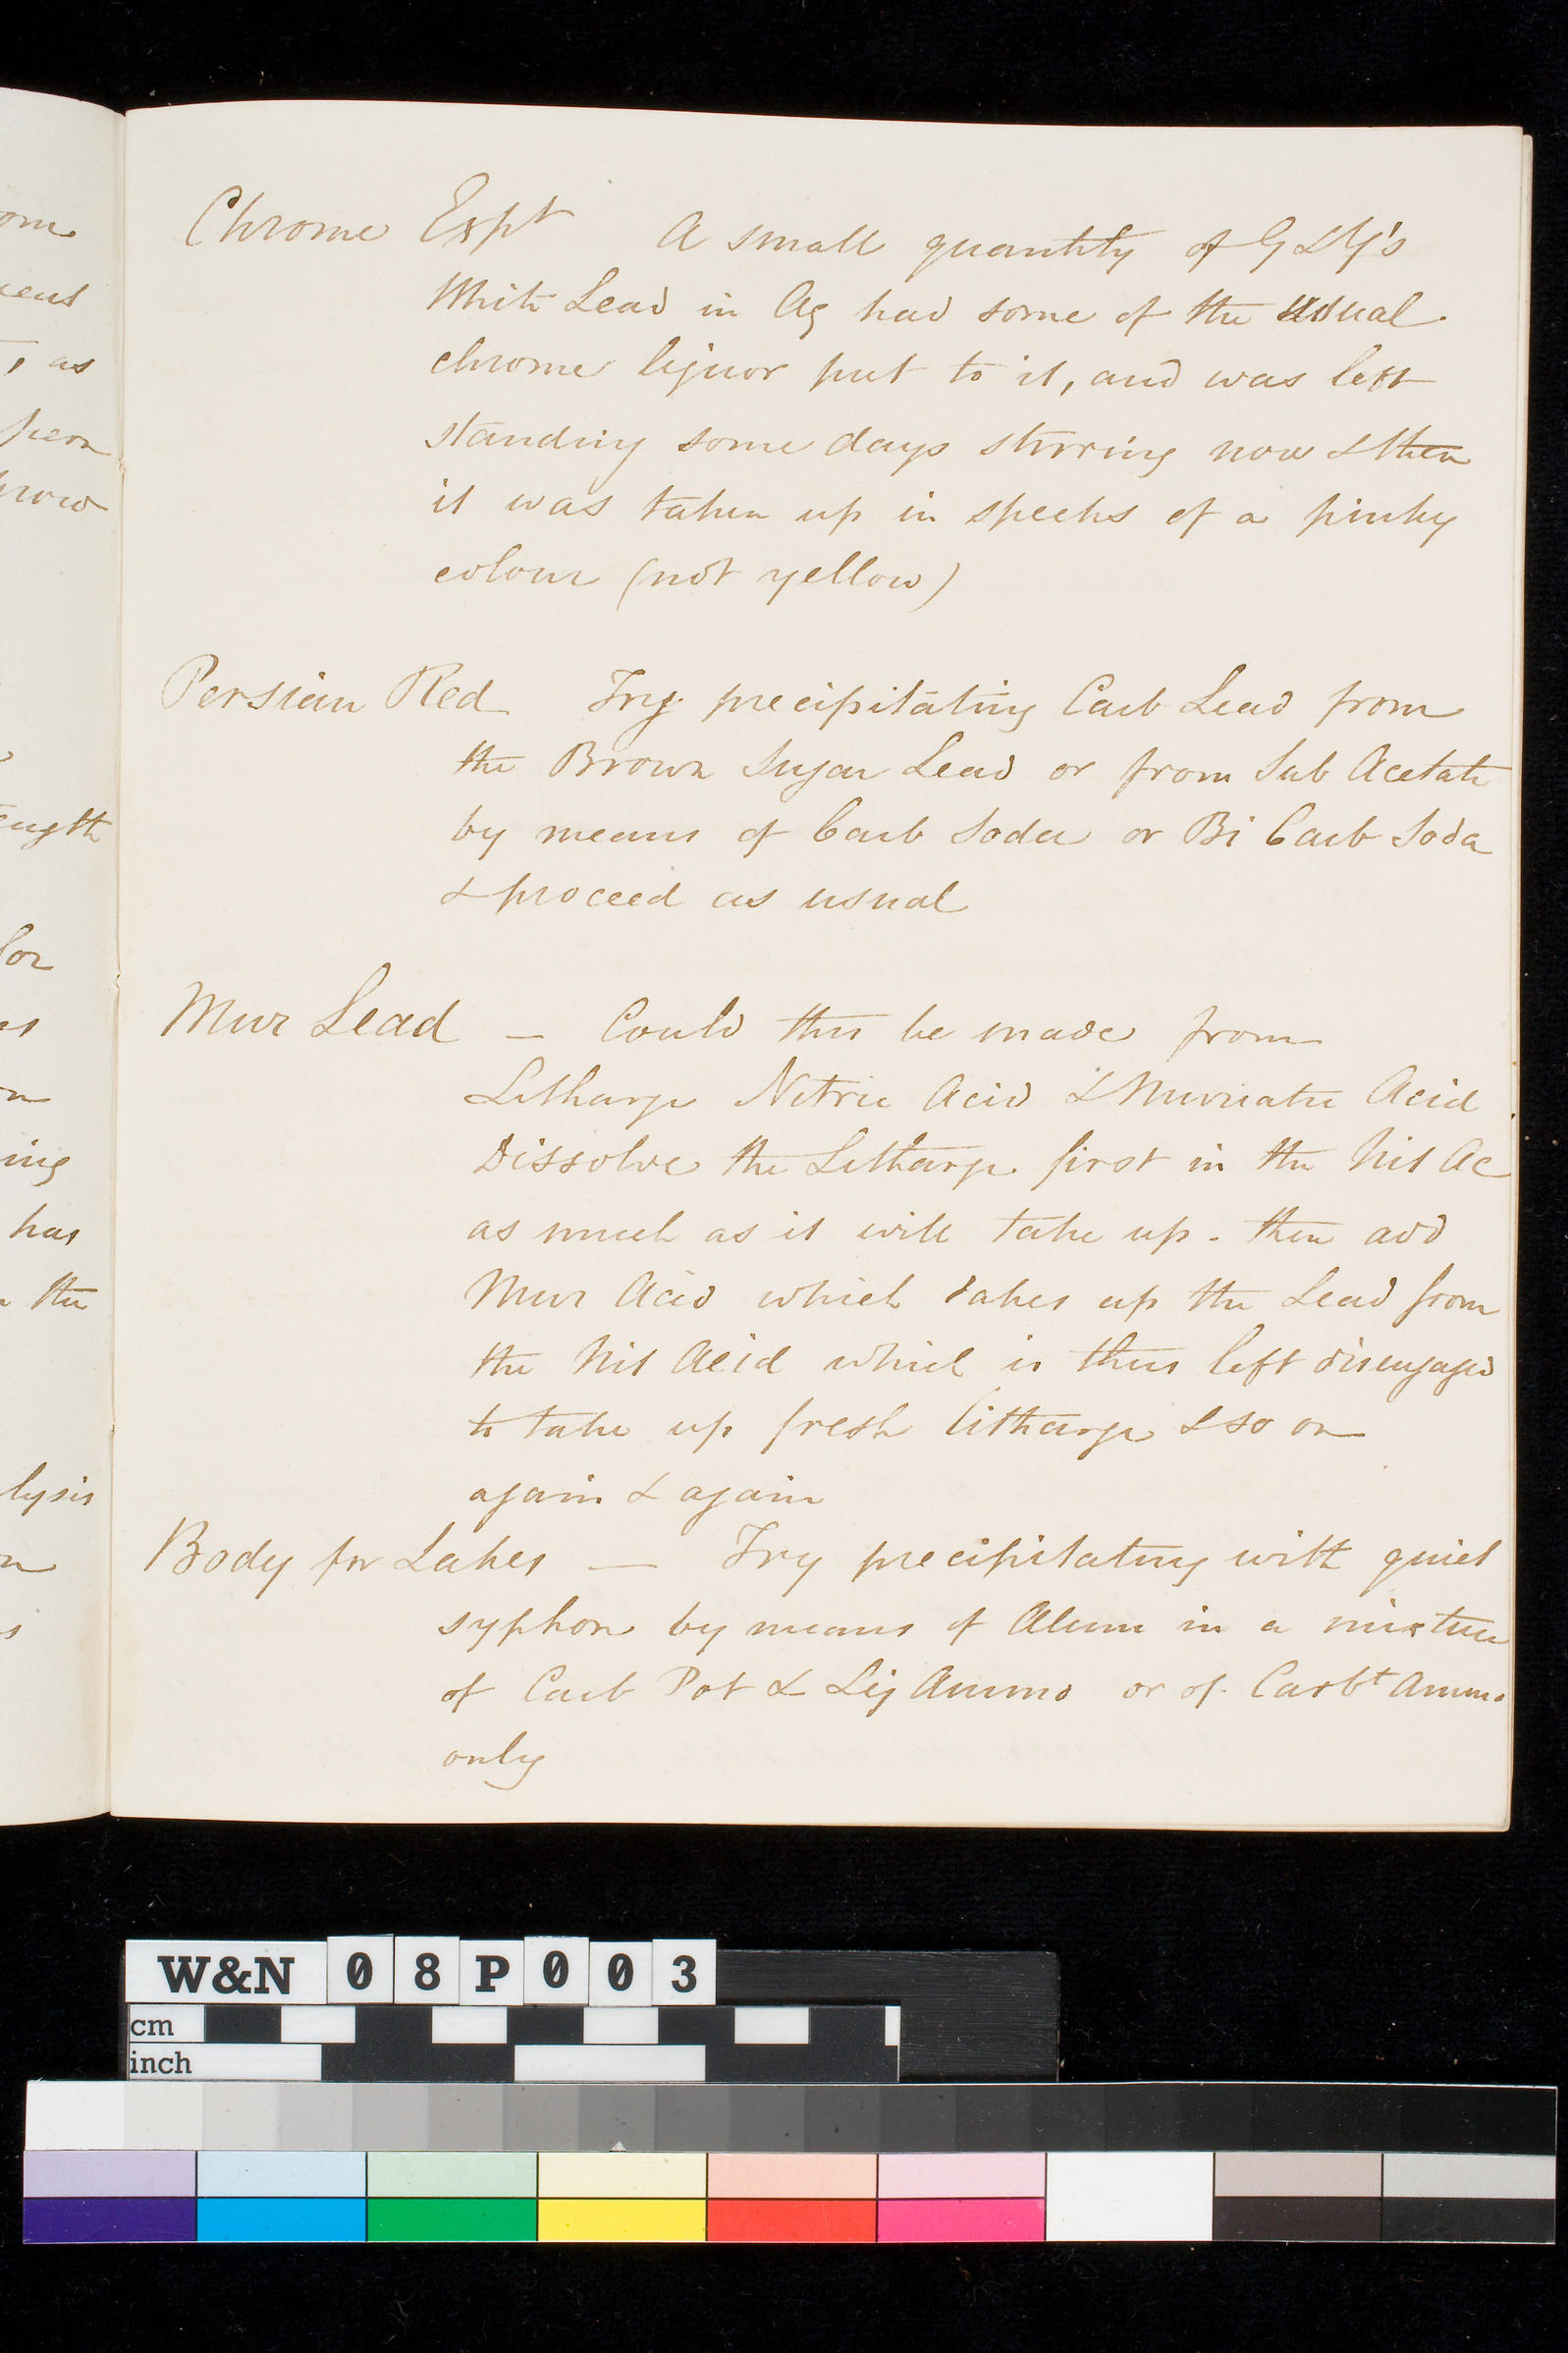 om
, as
now
ength
for
ing
has
the
lysis
Chrome Expt A small quantity of G & G's
White Lead in Aq had some of the usual
chrome liquor put to it, and was left
standing some days stirring now & then
it was taken up in specks of a pinky
colour (not yellow)
Persian Red Try precipitating Carb Lead from
the Brown Sugar Lead or from Sub Acetate
by means of Carb Soda or Bi Carb Soda
& proceed as usual
Mur Lead — Could this be made from
Litharge Nitric Acid & Muriatic Acid
Dissolve the Litharge first in the Nit Ac
as much as it will take up - then add
Mur Acid which takes up the Lead from
the Nit Acid which is thus left disengaged
to take up fresh litharge & so on
again & again
Body for Lakes — Try precipitating with quiet
syphon by means of Alum in a mixture
of Carb Pot & Liq Ammo or of Carbt Ammo
only
W&N 08P003
cm
inch